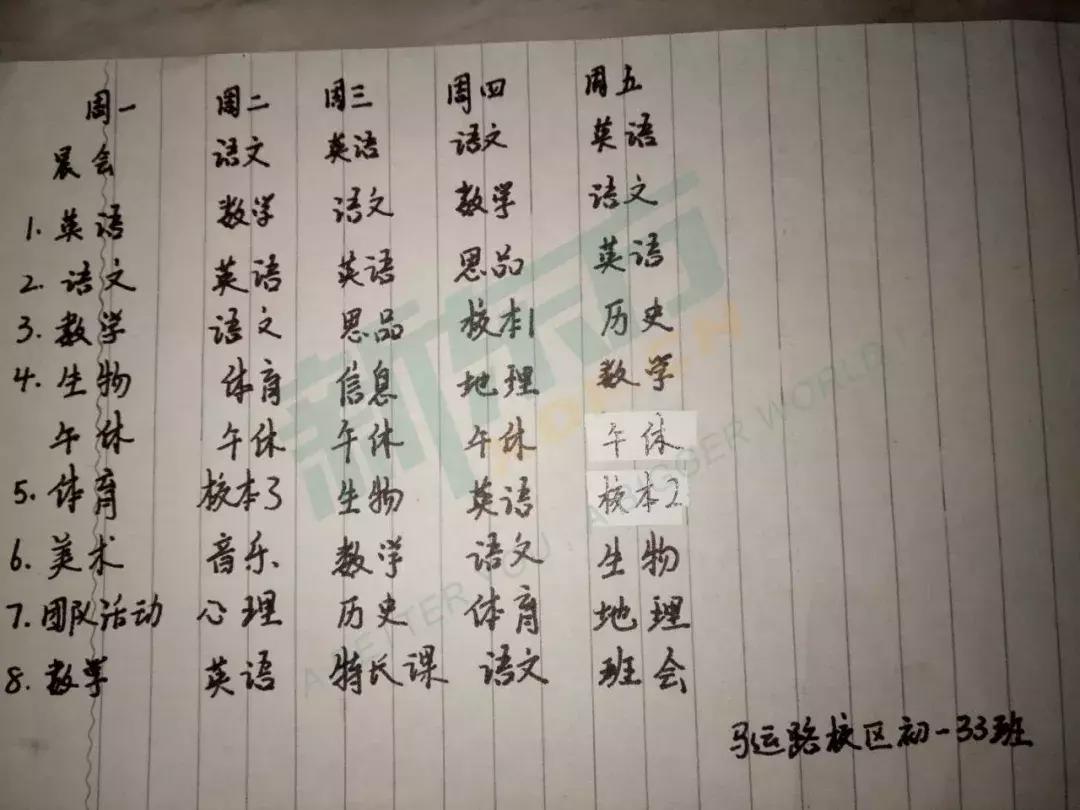 周一 周二 周三 周四 周五
晨会 语文 英语 语文 英语
1. 英语 数学 语文 数学 语文
2. 语文 英语 英语 思品 英语
3. 数学 语文 思品 校本1 历史
4. 生物 体育 信息 地理 数学
午休 午休 午休 午休 午休
5. 体育 校本3 生物 英语 校本2
6. 美术 音乐 数学 语文 生物
7. 团队活动 心理 历史 体育 地理
8. 数学 英语 特长课 语文 班会
马运路校区初一33班
新东方
XDF.CN
A BETTER YOU, A BIGGER WORLD!